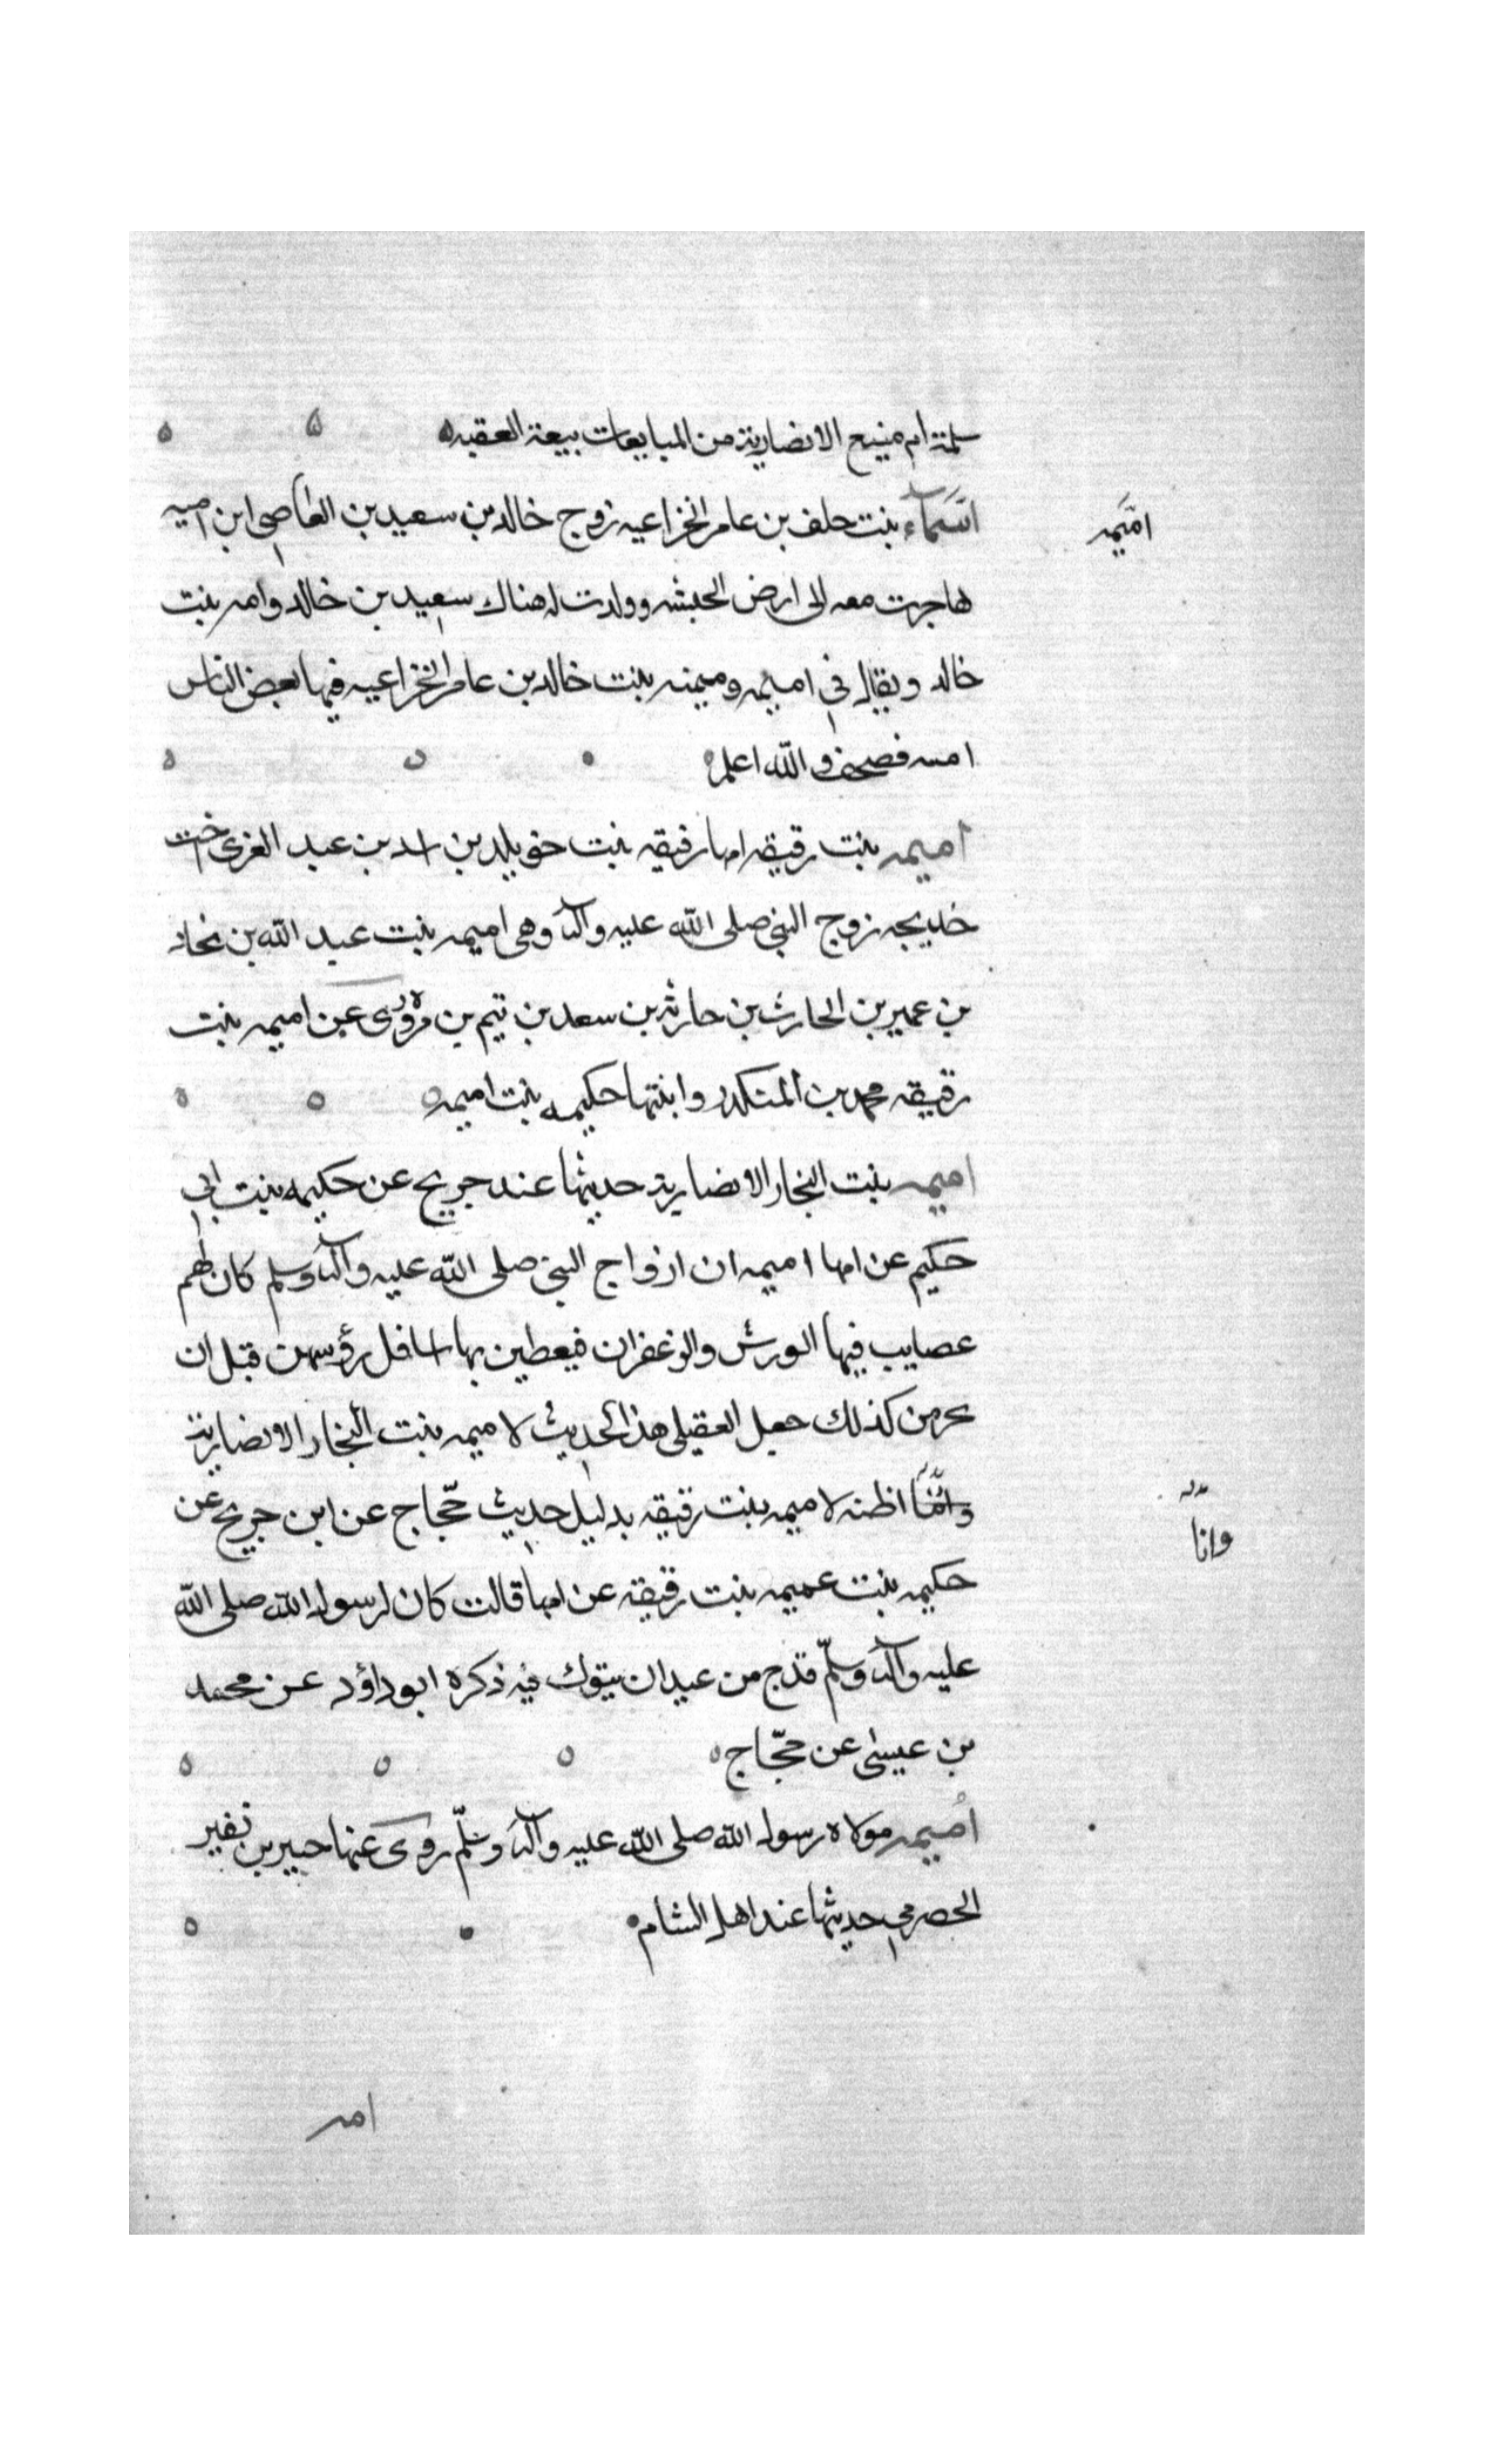 سلمة ام منيع الانصارية من المبايعات بيعة العقبه
اسماء بنت خلف بن عامر الخزاعيه زوج خالد بن سعيد بن العاصي ابن اميه
اميمه
هاجرت معه الى ارض الحبشه وولدت له هناك سعيد بن خالد وامه بنت
خالد ويقال في اميمه وميمنه بنت خالد بن عامر الخزاعيه فيها بعض الناس
امنه فصحف والله اعلم
اميمه بنت رقيقه امها رقيقه بنت خويلد بن اسد بن عبد العزى اخت
خديجه زوج النبي صلى الله عليه وآله وهي اميمه بنت عبد الله بن نجاد
بن عمير بن الحارث بن حارثه بن سعد بن تيم بن مره روى عن اميمه بنت
رقيقه محمد بن المنكدر وابنتها حكيمه بنت اميمه
اميمه بنت النجار الانصارية حديثها عند جريج عن حكيمه بنت ابي
حكيم عن امها اميمه ان ازواج النبي صلى الله عليه وآله وسلم كان لهم
عصايب فيها الورش والزغفران فيعطين بها اسافل رؤسهن قبل ان
يحرمن كذلك جعل العقيلي هذا الحديث لاميمه بنت النجار الانصارية
وامّا اظنه لاميمه بنت رقيقه بدليل حديث حجّاج عن ابن جريج عن
وانا
حكيمه بنت عميمه بنت رقيقه عن امها قالت كان لرسول الله صلى الله
عليه وآله وسلّم قدح من عيدان يتوك فيه ذكره ابو داؤد عن محمد
بن عيسى عن حجّاج
اميمه مولاة رسول الله صلى الله عليه وآله وسلّم روى عنها جبير بن نفير
الحصرمي حديثها عند اهل الشام
امه